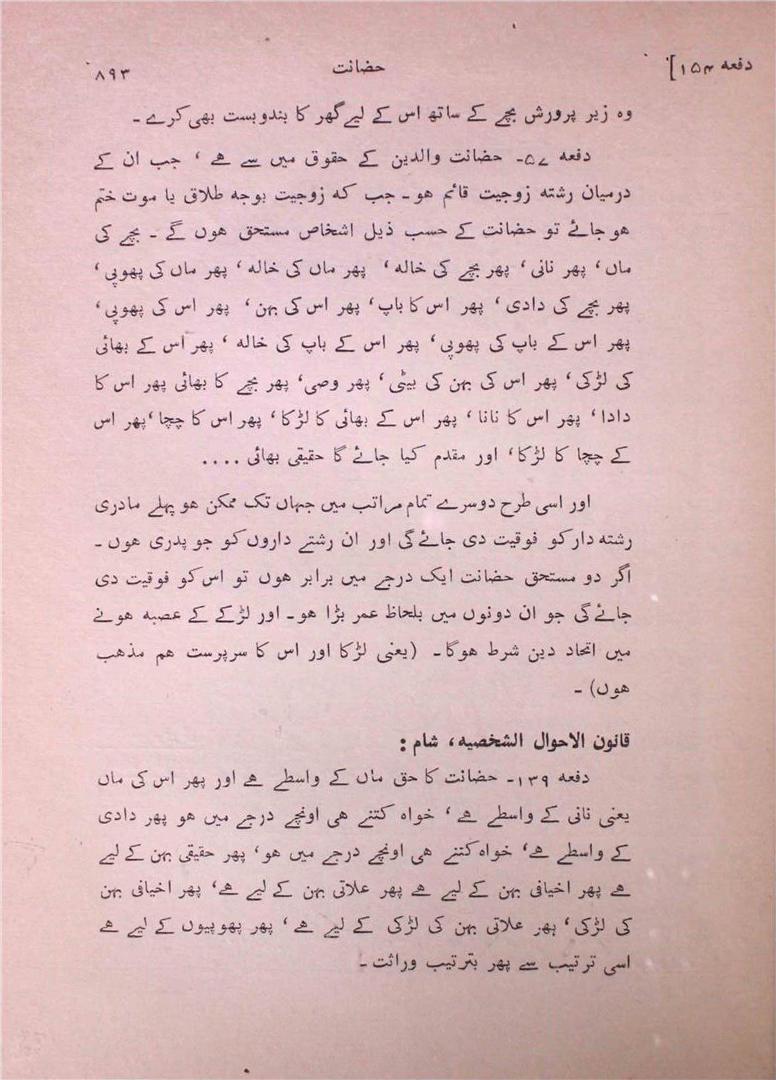 دفعہ ۱۵۴] حضانت ۸۹۳
وہ زیر پرورش بچے کے ساتھ اس کے لیے گھر کا بندوبست بھی کرے ۔
دفعہ ۵۷۔ حضانت والدین کے حقوق میں سے ہے ، جب ان کے
درمیان رشتہ زوجیت قائم ہو ۔ جب کہ زوجیت بوجہ طلاق یا موت ختم
ہو جائے تو حضانت کے حسب ذیل اشخاص مستحق ہوں گے ۔ بچے کی
ماں، پھر نانی، پھر بچے کی خالہ ، پھر ماں کی خالہ ، پھر ماں کی پھوپی،
پھر بچے کی دادی ، پھر اس کا باپ، پھر اس کی بہن، پھر اس کی پھوپی،
پھر اس کے باپ کی پھوپی، پھر اس کے باپ کی خالہ ، پھر اس کے بھائی
کی لڑکی، پھر اس کی بہن کی بیٹی، پھر وصی، پھر بچے کا بھائی پھر اس کا
دادا، پھر اس کا نانا، پھر اس کے بھائی کا لڑکا، پھر اس کا چچا، پھر اس
کے چچا کا لڑکا، اور مقدم کیا جائے گا حقیقی بھائی ....
اور اسی طرح دوسرے تمام مراتب میں جہاں تک ممکن ہو پہلے مادری
رشتہ دار کو فوقیت دی جائے گی اور ان رشتے داروں کو جو پدری ہوں ۔
اگر دو مستحق حضانت ایک درجے میں برابر ہوں تو اس کو فوقیت دی
جائے گی جو ان دونوں میں بلحاظ عمر بڑا ہو ۔ اور لڑکے کے عصبہ ہونے
میں اتحاد دین شرط ہوگا ۔ (یعنی لڑکا اور اس کا سرپرست ہم مذہب
ہوں) ۔
قانون الاحوال الشخصیہ، شام :
دفعہ ۱۳۹۔ حضانت کا حق ماں کے واسطے ہے اور پھر اس کی ماں
یعنی نانی کے واسطے ہے ، خواہ کتنے ہی اونچے درجے میں ہو پھر دادی
کے واسطے ہے، خواہ کتنے ہی اونچے درجے میں ہو، پھر حقیقی بہن کے لیے
ہے پھر اخیافی بہن کے لیے ہے پھر علاتی بہن کے لیے ہے، پھر اخیافی بہن
کی لڑکی، پھر علاتی بہن کی لڑکی کے لیے ہے ، پھر پھوپیوں کے لیے ہے
اسی ترتیب سے پھر بترتیب وراثت ۔